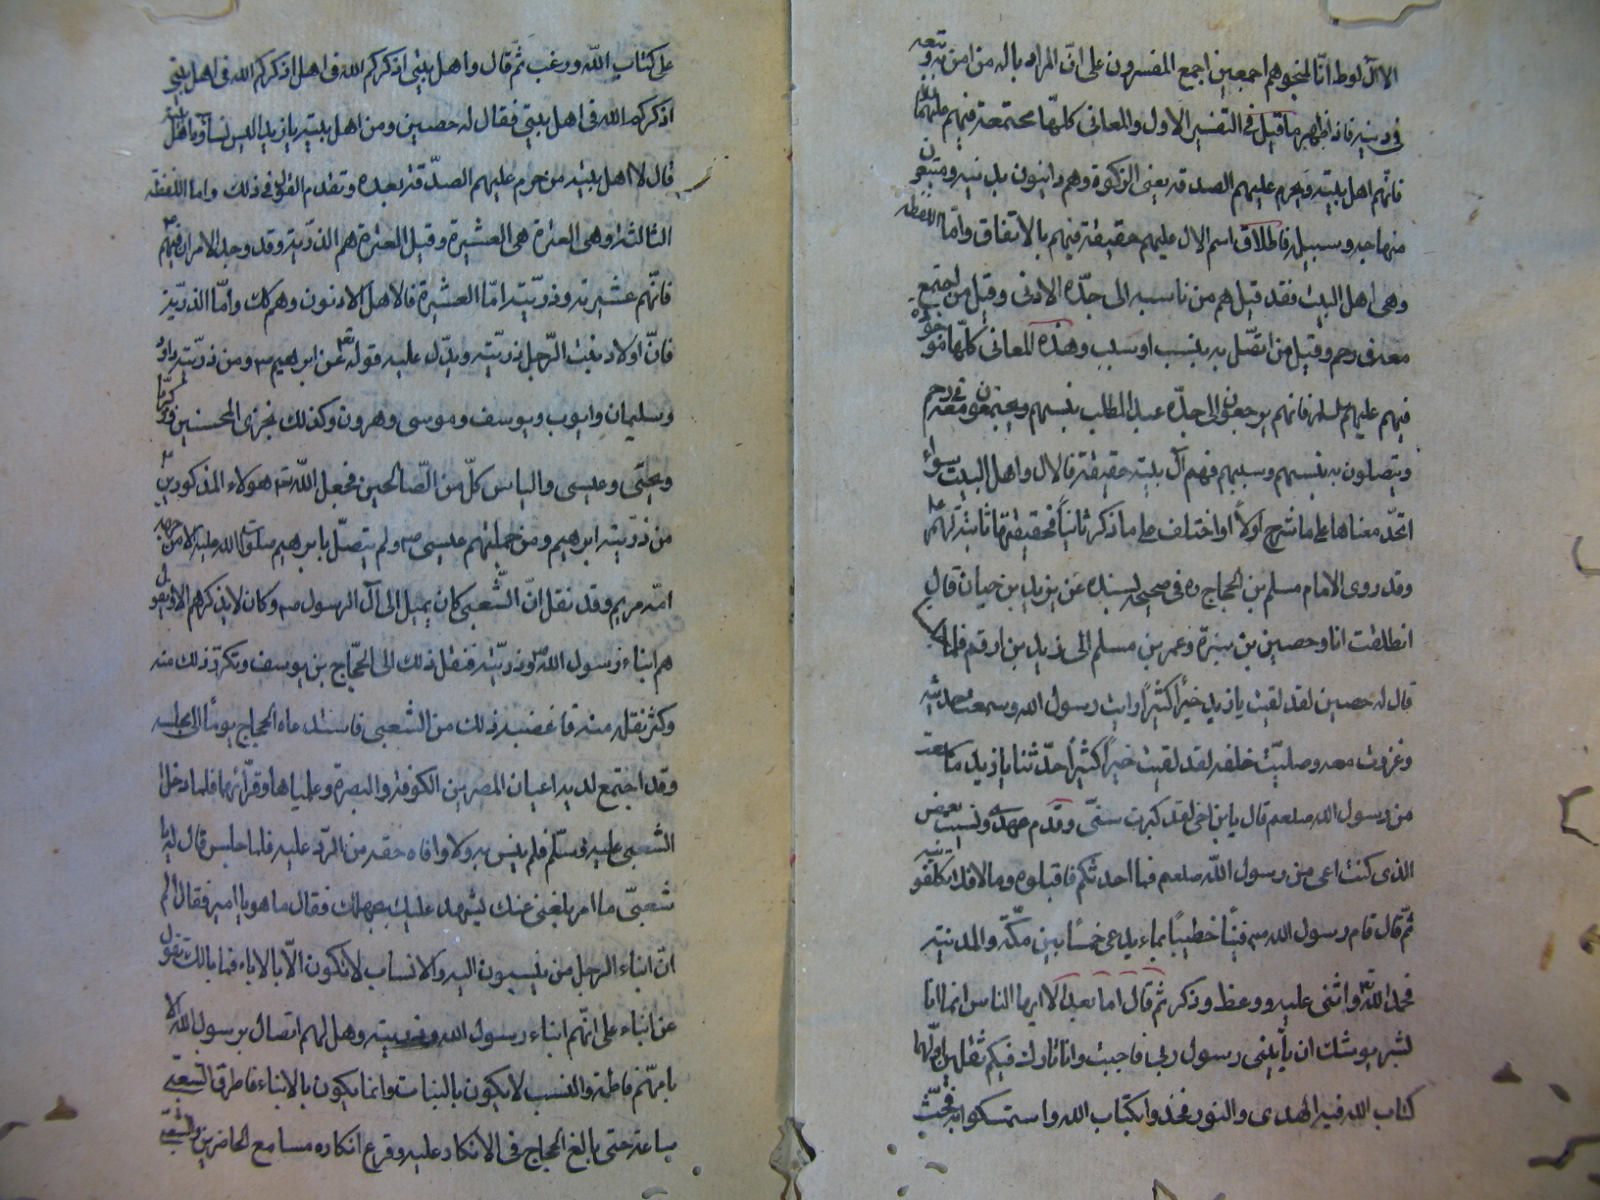 الا آل لوط انّا لمنجوهم اجمعين اجمع المفسرون على انّ المراد باله من امن به وتبعه
فى دينه فاذ ظهر ما قيل فى التفسير الاول والمعانى كلّها مجتمعة فيهم عليهم
فانّهم اهل بيته ويحرم عليهم الصدقه يعنى الزكوة وهم داينون بدينه ومتبعون
منهاجه وسبيله فاطلاق اسم الال عليهم حقيقة فيهم بالاتفاق وامّا اللفظة
وهى اهل البيت فقد قيل هم من ناسبه الى جدّه الادنى وقيل من اجتمع
معه فى رحم وقيل من اتصّل به بنسب او سبب وهذه المعانى كلّها موجوده
فيهم عليهم فانهم يرجعون الى جدّه عبد المطلب بنسبهم ويجتمعون معه فى رحم
ويتصلون به بنسبهم وسببهم فهم آل بيته حقيقة فالال واهل البيت سواء
اتحد معناها على ما شرح اولاً او اختلف على ما ذكر ثانياً فحقيقتها ثابتة لهم
وقد روى الامام مسلم بن الحجاج ره فى صحيحه بسنده عن يزيد بن حيان قال
انطلقت انا وحصين بن سبرة وعمر بن مسلم الى زيد بن ارقم فلما
قال له حصين لقد لقيت يا زيد خيرًا كثيرًا رايت رسول الله وسمعت حديثه
وغزوت معه وصليّت خلفه لقد لقيت خيراً كثيراً حدّثنا يا زيد ما سمعت
من رسول الله صلعم قال يا بن اخى لقد كبرت سنّى وقدم عهدى ونسيت بعض
الذى كنت اعى من رسول اللّه صلعم فما احدثكم فاقبلوه وما لا فلا تكلفونيه
ثمّ قال قام رسول الله ص فينا خطيبًا بماء يدعى خمّا بين مكّة والمدينة
فحمد اللّه واثنى عليه ووعظ وذكر ثم قال اما بعد الا ايها الناس انما انا
بشر يوشك ان يأتينى رسول ربى فاجيب وانا تارك فيكم ثقلين اولهما
كتاب الله فيه الهدى والنور فخذوا بكتاب الله واستمسكوا به فحثّ
على كتاب اللّه ورغب ثمّ قال واهل بيتى اذكركم الله فى اهل اذكركم الله فى اهل بيتى
اذكركم الله فى اهل بيتى فقال له حصين ومن اهل بيته يا زيد اليس نساؤه من اهل بيته
قال لا اهل بيته من حرم عليهم الصدّقة بعده وتقدم القول فى ذلك واما اللفظة
الثالثة وهى العترة هى العشيرة وقيل العترة هم الذرّية وقد وجد الامران فيهم
فانّهم عشيرته وذرّيته امّا العشيرة فالاهل الادنون وهم كك وامّا الذرّية
فانّ اولاد بنت الرّجل ذريّته ويدّل عليه قوله تع عن ابرهيم ص ومن ذرّيته داود
وسليمان وايوب ويوسف وموسى وهرون وكذلك نجزى المحسنين وزكريّا
ويحيى وعيسى والياس كلّ من الصّالحين فجعل اللّه تع هولاء المذكورين
من ذرّيته ابرهيم ومن جملتهم عيسى ص ولم يتصّل بابرهيم صلوت الله عليه الا من جهة
امّه مريم وقد نقل انّ الشّعبى كان يميل الى آل الرسول ص وكان لا يذكرهم الا ويقول
هم ابناء رسول اللّه وذرّيته فنقل ذلك الى الحجّاج بن يوسف وتكرّر ذلك منه
وكثر نقله منه فاغضبه ذلك من الشعبى فاستدعاه الحجاج يوماً الى مجلسه
وقد اجتمع لديه اعيان المصرين الكوفة والبصرة وعلماها وقرّائها فلما دخل
الشعبى عليه وسلّم فلم يبش به ولا وافاه حقه من الردّ عليه فلما جلس قال له يا
شعبىّ ما امر بلغنى عنك يشهد عليك بجهلك فقال ما هو يا امير فقال الم
انّ ابناء الرجل من ينسبون اليه والانساب لا تكون الّا بالاباء فما بالك تقول
عن ابناء على انّهم ابناء رسول الله وذريته وهل لهم اتصال برسول الله الا
بامّهم فاطمة والنسب لا يكون بالبنات وانما يكون بالابناء فاطرق الشعبى
ساعة حتى بالغ الحجاج فى الانكار عليه وقرع انكاره مسامع الحاضرين والشعبى